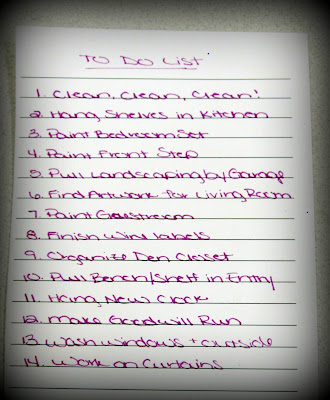 To Do List
1. Clean, Clean, Clean!
2. Hang Shelves in Kitchen
3. Paint Bedroom Set
4. Paint Front Step
5. Pull Landscaping by Garage
6. Find Artwork for Living Room
7. Paint
8. Finish Wine labels
9. Organize Den Closet
10. Pull Bench/Shelf in Entry
11. Hang New Clock
12. Make Goodwill Run
13. Wash windows + outside
14. Work on Curtains